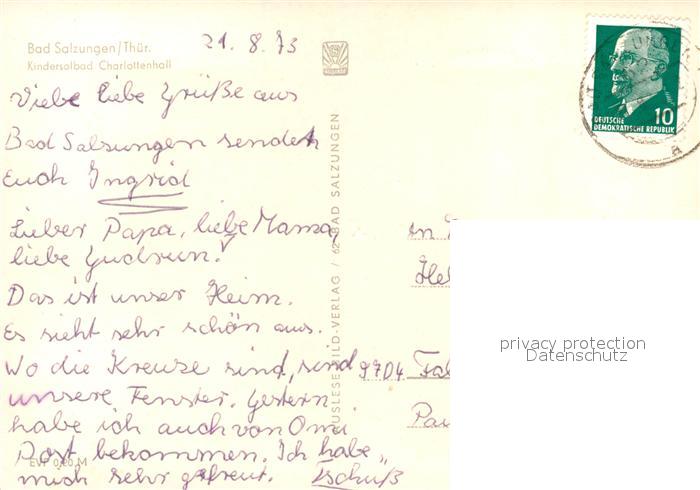 Bad Salzungen/Thür.
Kindersolbad Charlottenhall
21. 8. 73
Viele liebe Grüße aus
Bad Salzungen sendet
Euch Ingrid
Lieber Papa, liebe Mama,
liebe Gudrun!
Das ist unser Heim.
Es sieht sehr schön aus.
Wo die Kreuze sind, sind
unsere Fenster. Gestern
habe ich auch von Omi
Post bekommen. Ich habe
mich sehr gefreut. Tschüß
EVP 0,20 M
AUSLESE-BILD-VERLAG / 62 BAD SALZUNGEN
10
DEUTSCHE
DEMOKRATISCHE REPUBLIK
9704
privacy protection
Datenschutz